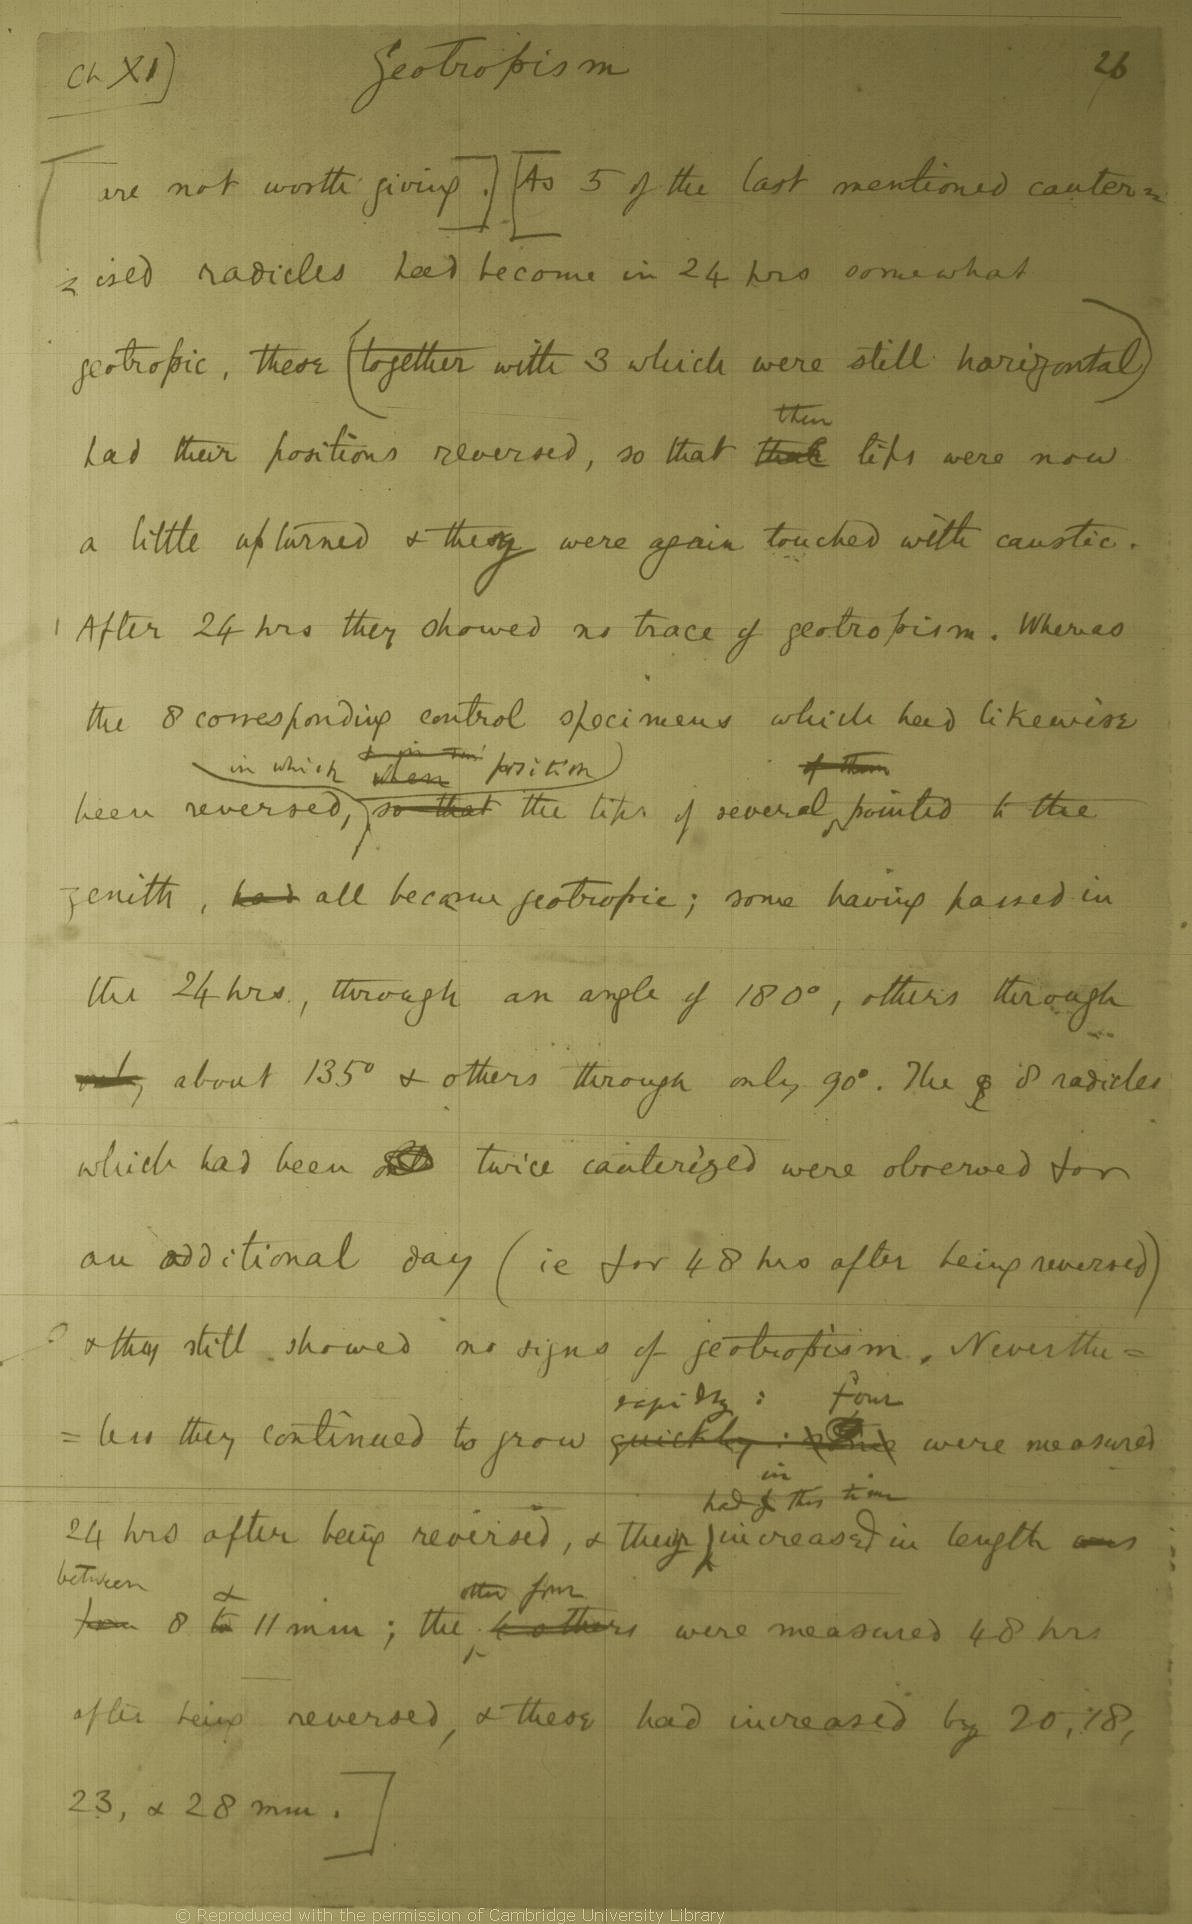 Ch XI)
Geotropism
26
are not worth giving.] [As 5 of the last mentioned cauter=
=ised radicles had become in 24 hrs somewhat
geotropic, these (together with 3 which were still horizontal)
then
had their positions reversed, so that their tips were now
a little upturned & they were again touched with caustic.
After 24 hrs they showed no trace of geotropism. Whereas
the 8 corresponding control specimens which had likewise
in which when position of them
been reversed, so that the tips of several pointed to the
zenith, had all became geotropic; some having passed in
the 24 hrs., through an angle of 180°, others through
only about 135° & others through only 90°. The 8 radicles
which had been twice cauterized were observed for
an additional day (ie for 48 hrs after being reversed)
& they still showed no signs of geotropism. Neverthe=
rapidly: four
=less they continued to grow quickly: some were measured
had in this time
24 hrs after being reversed, & they increased in length
between & other four
from 8 to 11 mm; the 4 others were measured 48 hrs
after being reversed, & these had increased by 20, 18,
23, & 28 mm.]
© Reproduced with the permission of Cambridge University Library